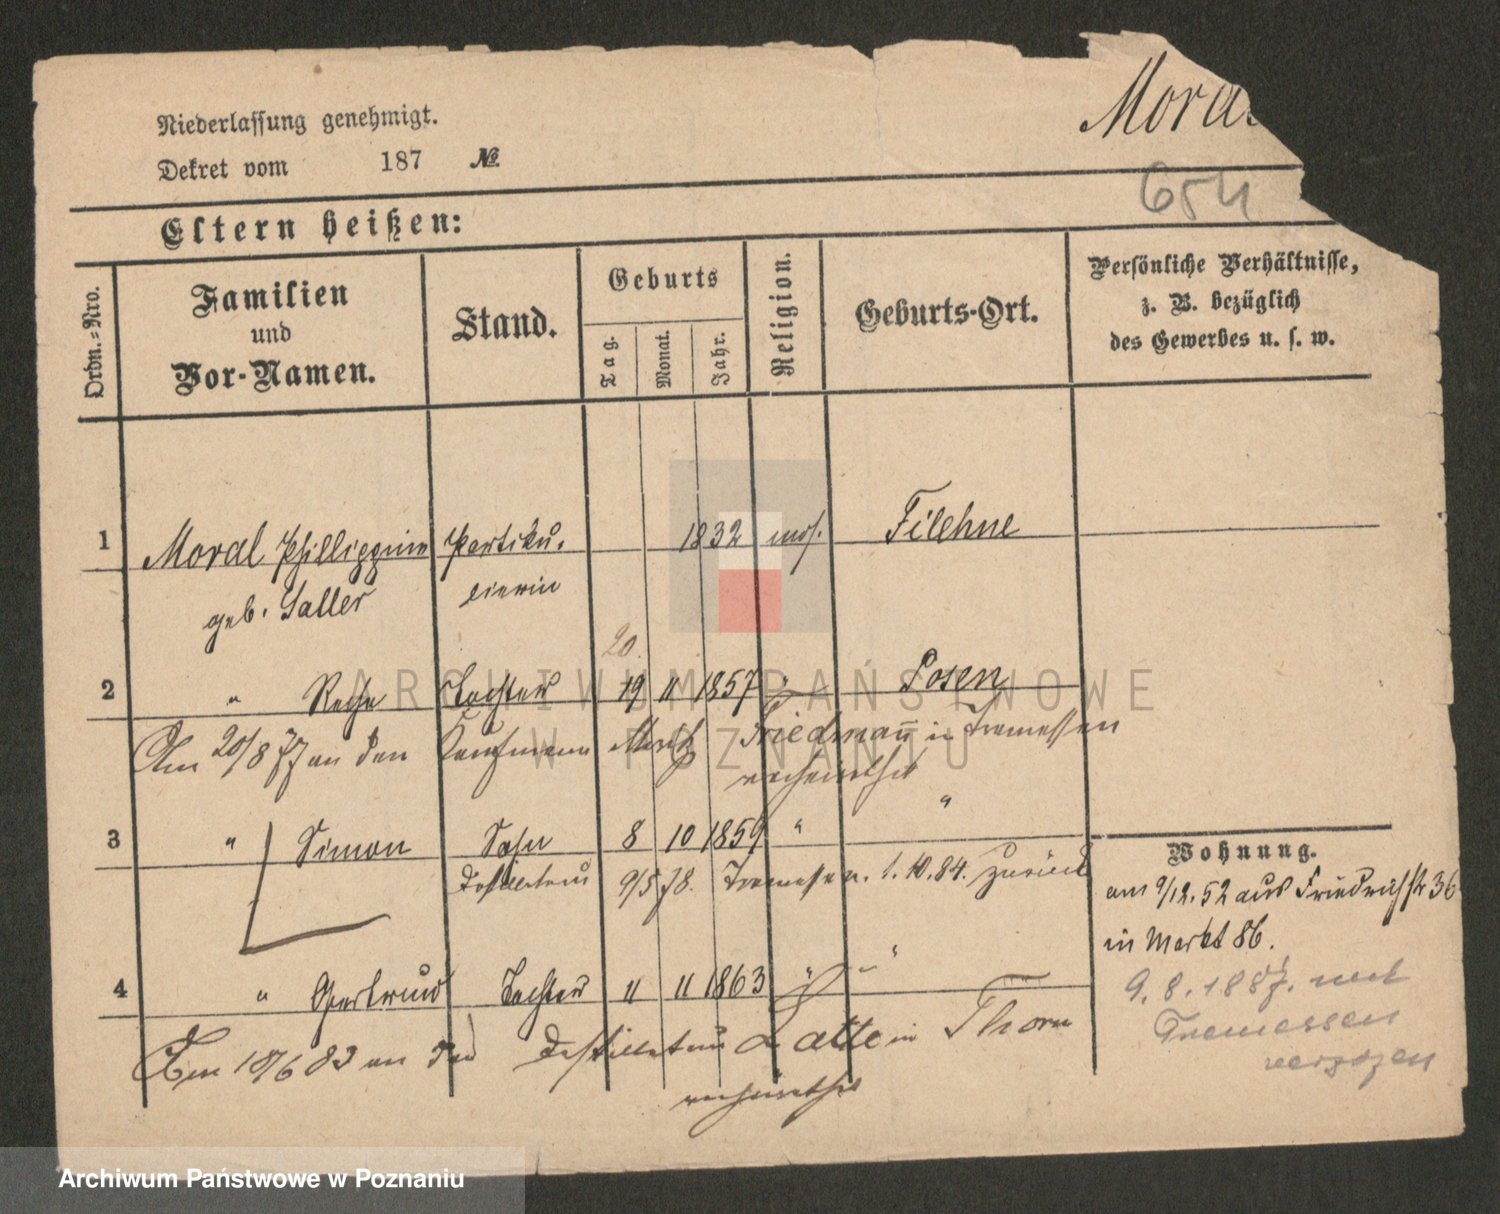 Niederlassung genehmigt.
Moral
Dekret vom 187 №
654
Eltern heißen:
Ordn.-Nro.
Familien
und
Vor-Namen.
Stand.
Geburts
Tag.
Monat.
Jahr.
Religion.
Geburts-Ort.
Persönliche Verhältnisse,
z. B. bezüglich
des Gewerbes u. s. w.
1 Moral Phillippine Partiku- 1832 mos. Filehne
geb. Saller lierin
20.
2 " Tochter 19 11 1857 " Posen
Am 20/8 77 an den Kaufmann Moritz Friedmann in Tremessen
verheirathet
3 " Simon Sohn 8 10 1859 " "
Destillateur 9/5 78. Tremessen. 1.10.84. zurück
4 " Gertrud Tochter 11 11 1863 " "
Am 18/6 83 an den Destillateur Latte in Thorn
verheirathet
Wohnung.
am 9/12. 52 aus Friedrichstr 36
in Markt 86.
9. 8. 1887. nach
Tremessen
verzogen
ARCHIWUM PAŃSTWOWE
W POZNANIU
Archiwum Państwowe w Poznaniu